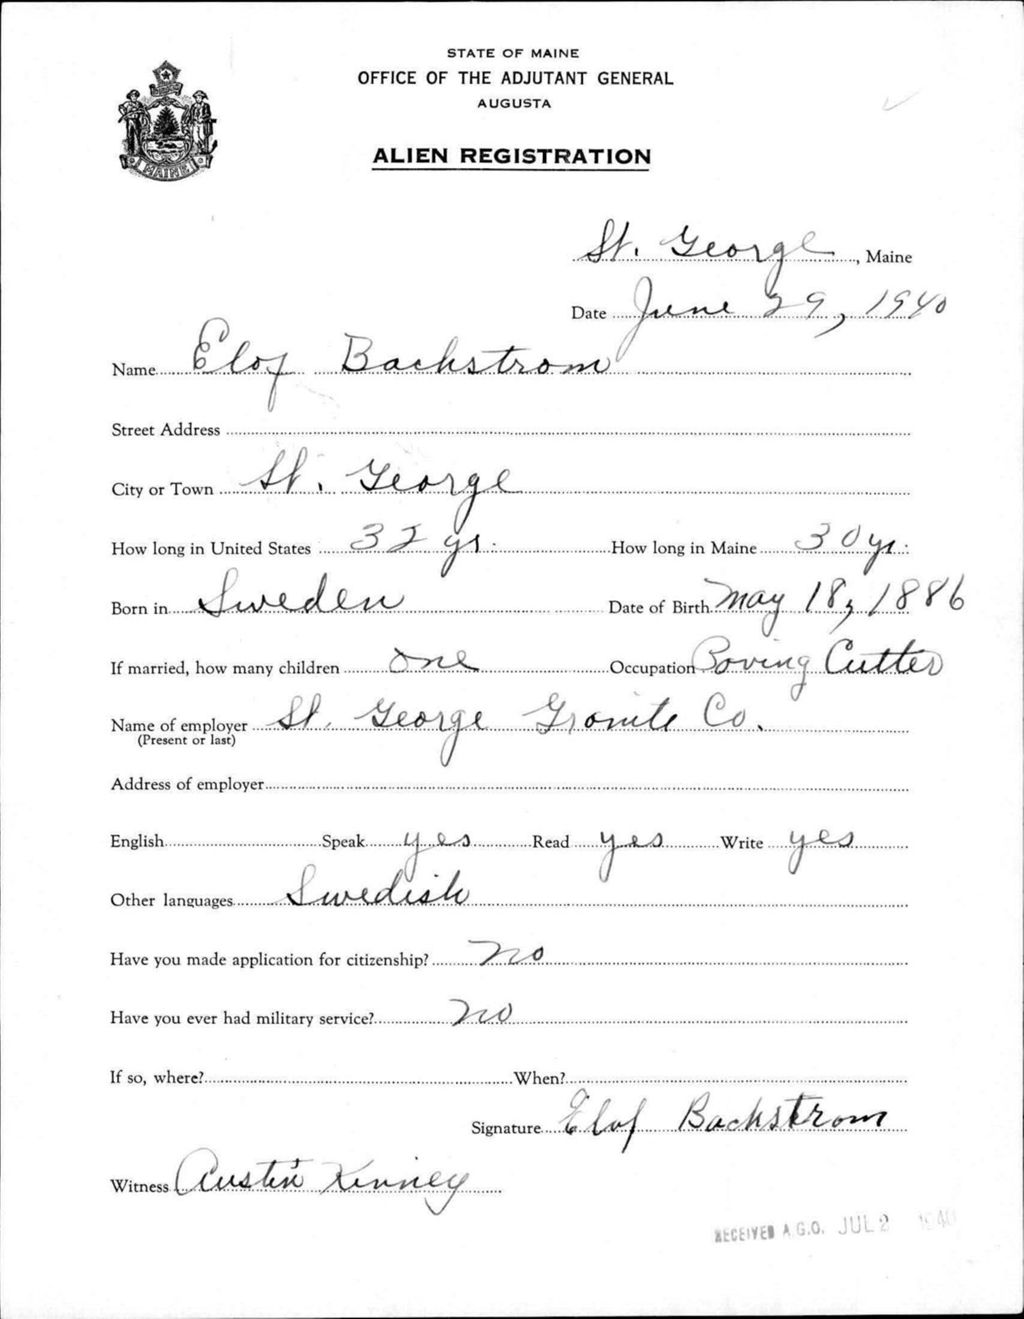 STATE OF MAINE
OFFICE OF THE ADJUTANT GENERAL
AUGUSTA
ALIEN REGISTRATION
MAINE
St. George, Maine
Date June 29, 1940
Name Elof Backstrom
Street Address
City or Town St. George
How long in United States 32 yrs. How long in Maine 30 yrs.
Born in Sweden Date of Birth May 18, 1886
If married, how many children one Occupation Poving Cutter
Name of employer St. George Granite Co.
(Present or last)
Address of employer
English Speak yes Read yes Write yes
Other languages Swedish
Have you made application for citizenship? no
Have you ever had military service? no
If so, where? When?
Signature Elof Backstrom
Witness Austin Kinney
RECEIVED A.G.O. JUL 2 1940